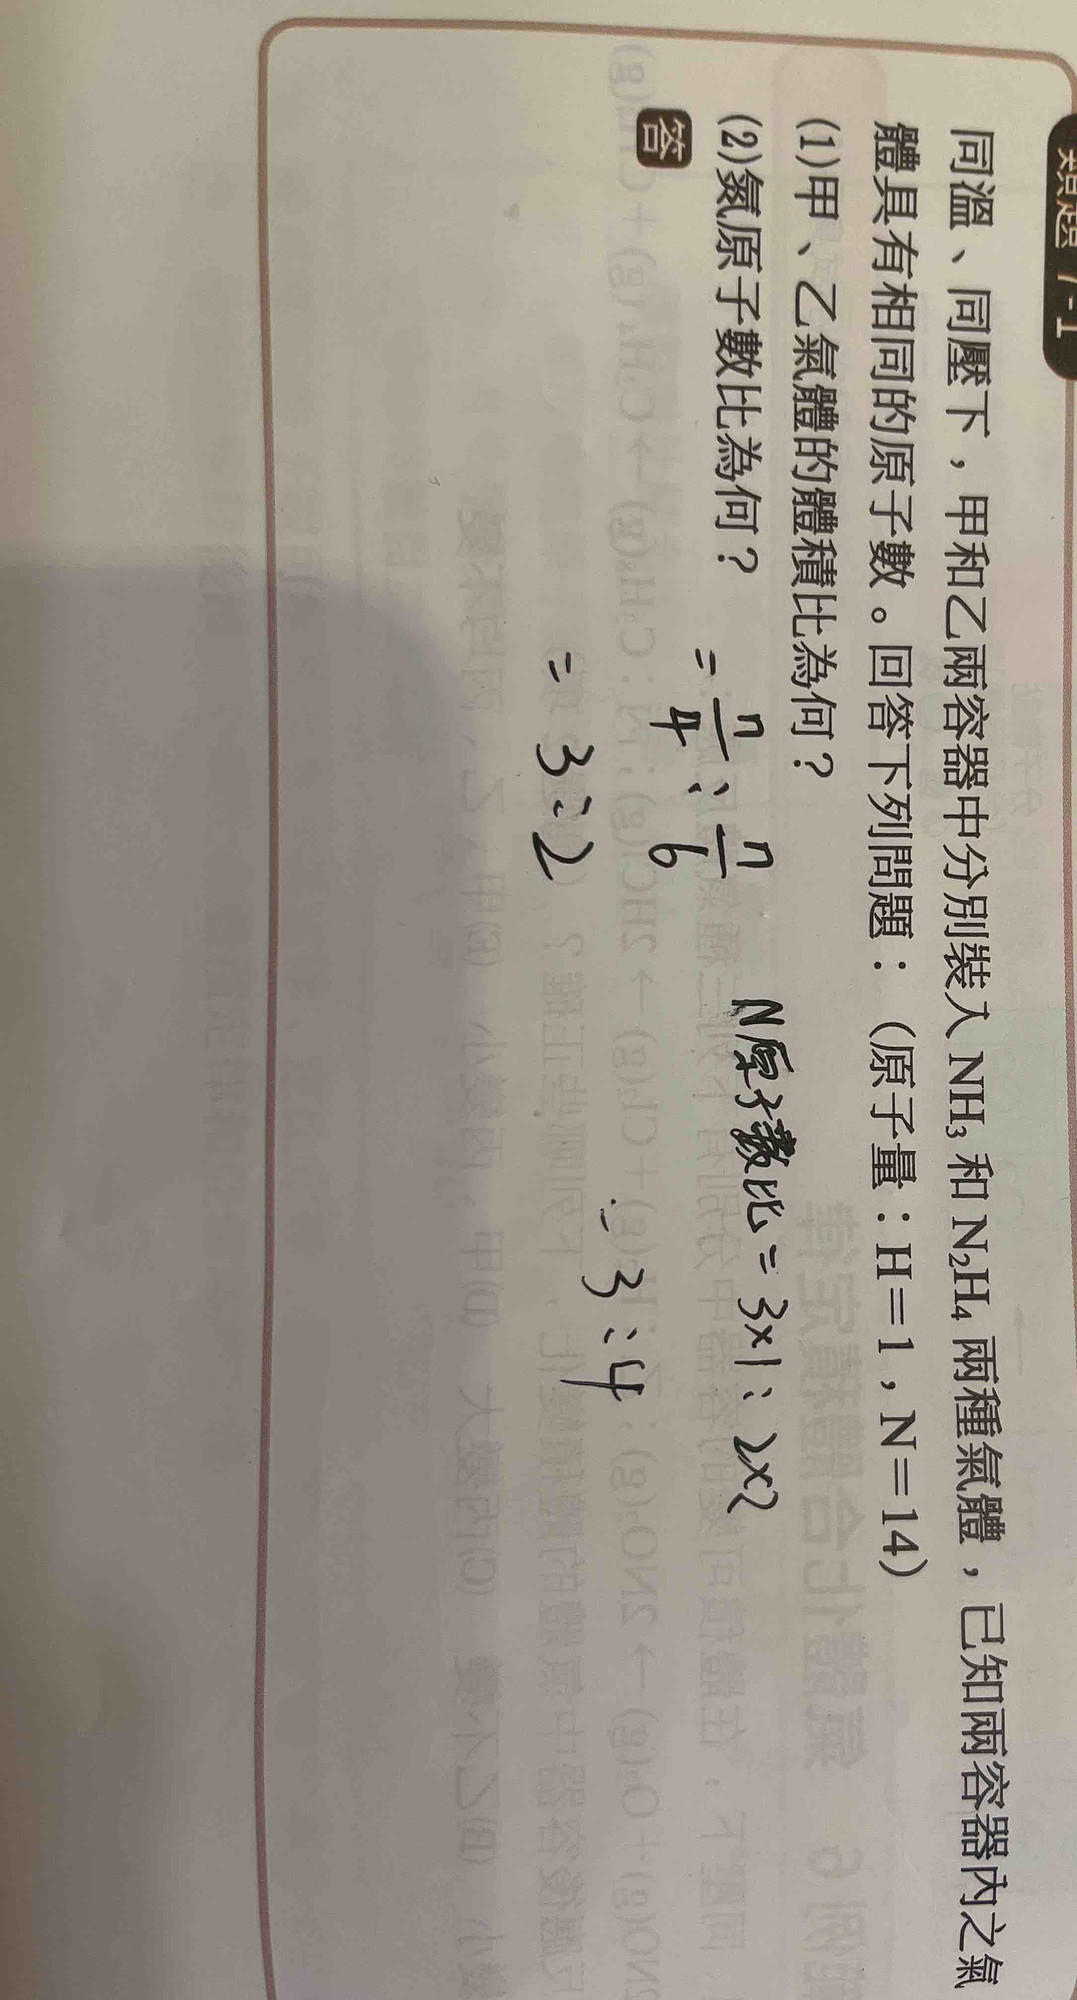 類題 7-1
同溫、同壓下，甲和乙兩容器中分別裝入 NH₃ 和 N₂H₄ 兩種氣體，已知兩容器內之氣
體具有相同的原子數。回答下列問題：（原子量：H＝1，N＝14）
(1)甲、乙氣體的體積比為何？
(2)氮原子數比為何？
答
= n/4 : n/6
= 3:2
N原子數比 = 3×1 : 2×2
= 3:4